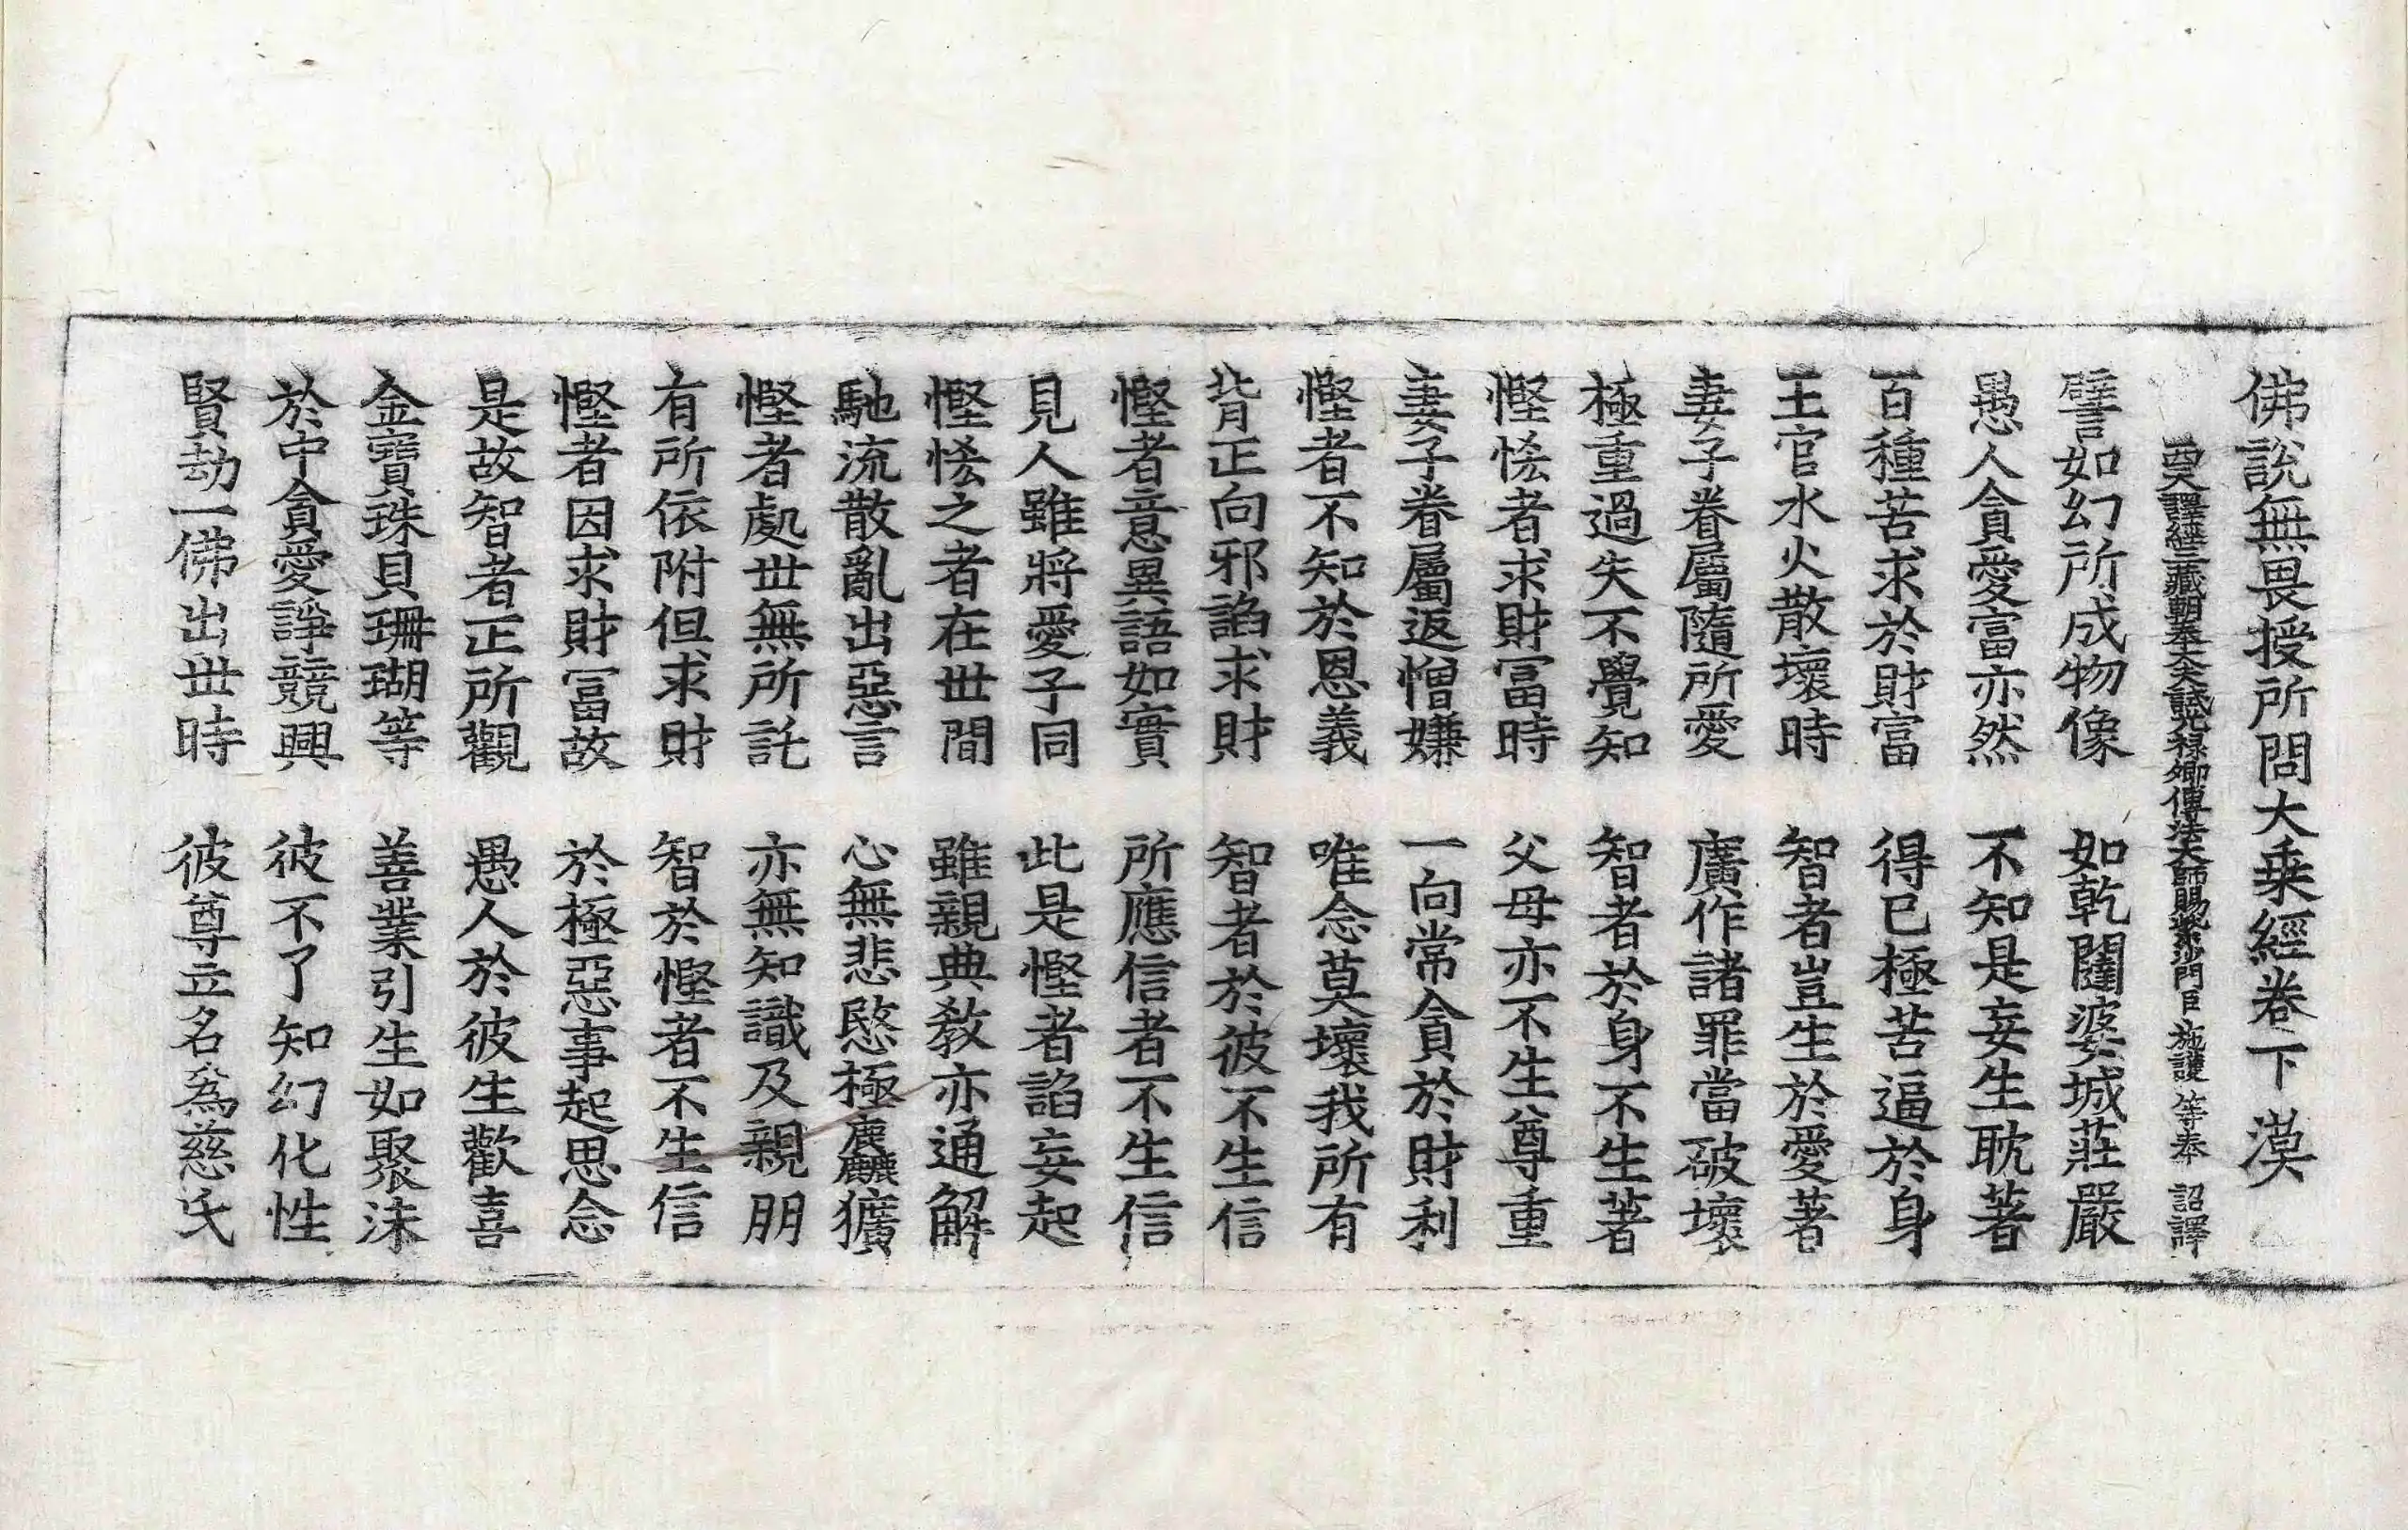 佛說無畏授所問大乗經卷下 漠
西天譯經三藏朝奉大夫試光祿卿傳法大師賜紫沙門臣 施護 等奉 詔譯
譬如幻所成物像 如乾闥婆城莊嚴
愚人貪愛富亦然 不知是妄生耽著
百種苦求於財富 得已極苦逼於身
王官水火散壞時 智者豈生於愛著
妻子眷屬隨所愛 廣作諸罪當破壞
極重過失不覺知 智者於身不生著
慳悋者求財冨時 父母亦不生尊重
妻子眷屬返憎嫌 一向常貪於財利
慳者不知於恩義 唯念莫壞我所有
背正向邪諂求財 智者於彼不生信
慳者意異語如實 所應信者不生信
見人雖將愛子同 此是慳者諂妄起
慳悋之者在世間 雖親典教亦通解
馳流散亂出惡言 心無悲愍極麁獷
慳者處世無所託 亦無知識及親朋
有所依附但求財 智於慳者不生信
慳者因求財冨故 於極惡事起思念
是故智者正所觀 愚人於彼生歡喜
金寶珠貝珊瑚等 善業引生如聚沫
於中貪愛諍競興 彼不了知幻化性
賢劫一佛出世時 彼尊立名為慈氏